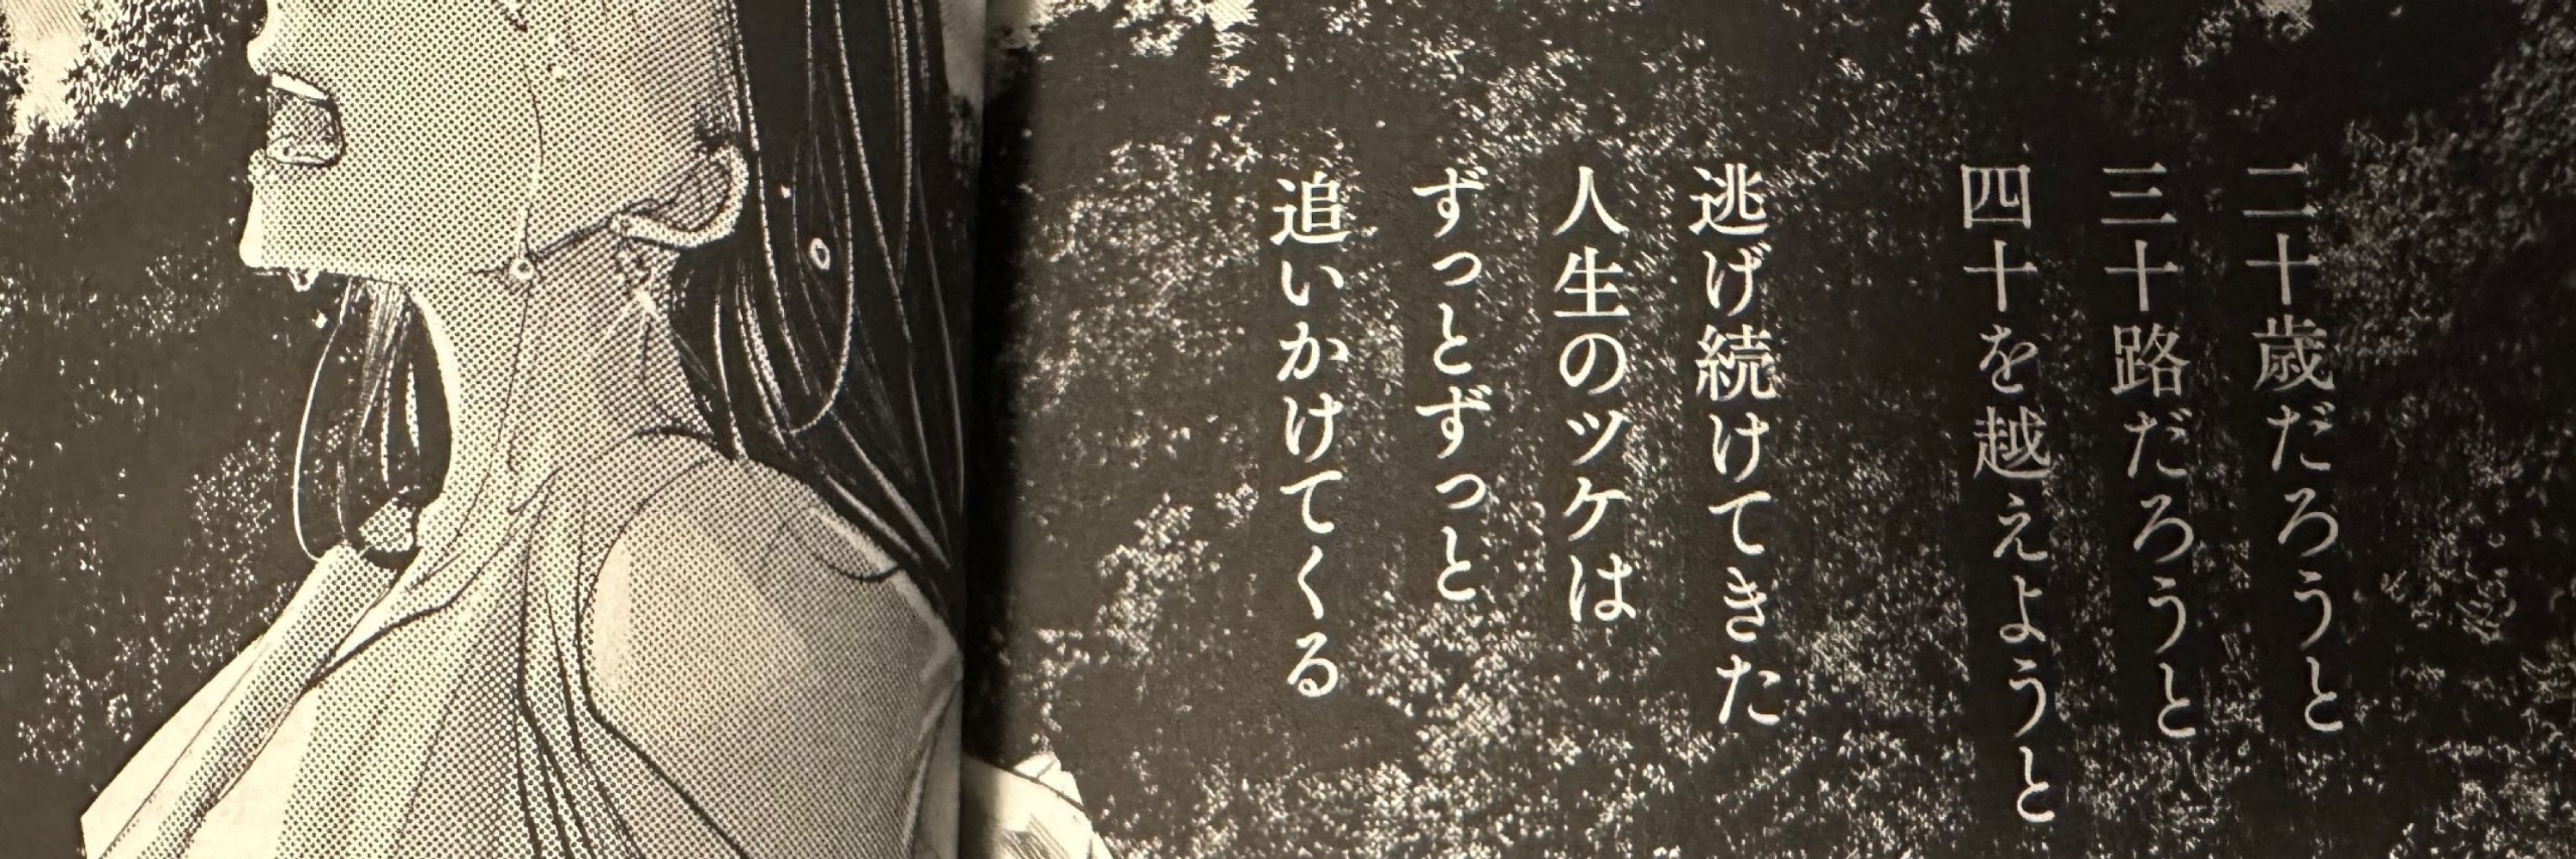 二十歳だろうと
三十路だろうと
四十を越えようと
逃げ続けてきた
人生のツケは
ずっとずっと
追いかけてくる